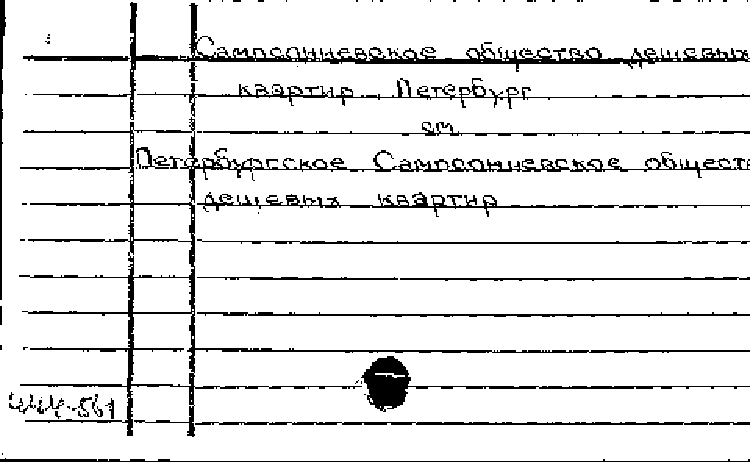 Сампсониевское общество дешевых
квартир Петербург
см
Петербургское Сампсониевское общест
дешевых квартир